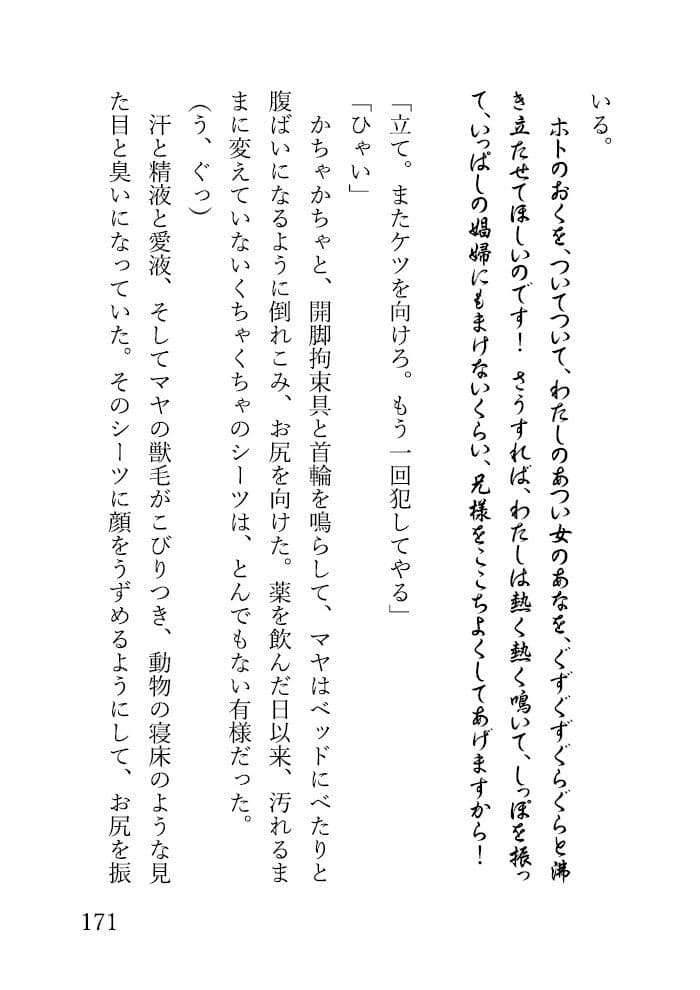 いる。
ホトのおくを、ついてついて、わたしのあつい女のあなを、ぐずぐずぐらぐらと沸
き立たせてほしいのです！　さうすれば、わたしは熱く熱く鳴いて、しっぽを振っ
て、いっぱしの娼婦にもまけないくらい、兄様をここちよくしてあげますから！
「立て。またケツを向けろ。もう一回犯してやる」
「ひゃい」
かちゃかちゃと、開脚拘束具と首輪を鳴らして、マヤはベッドにべたりと
腹ばいになるように倒れこみ、お尻を向けた。薬を飲んだ日以来、汚れるま
まに変えていないくちゃくちゃのシーツは、とんでもない有様だった。
（う、ぐっ）
汗と精液と愛液、そしてマヤの獣毛がこびりつき、動物の寝床のような見
た目と臭いになっていた。そのシーツに顔をうずめるようにして、お尻を振
171